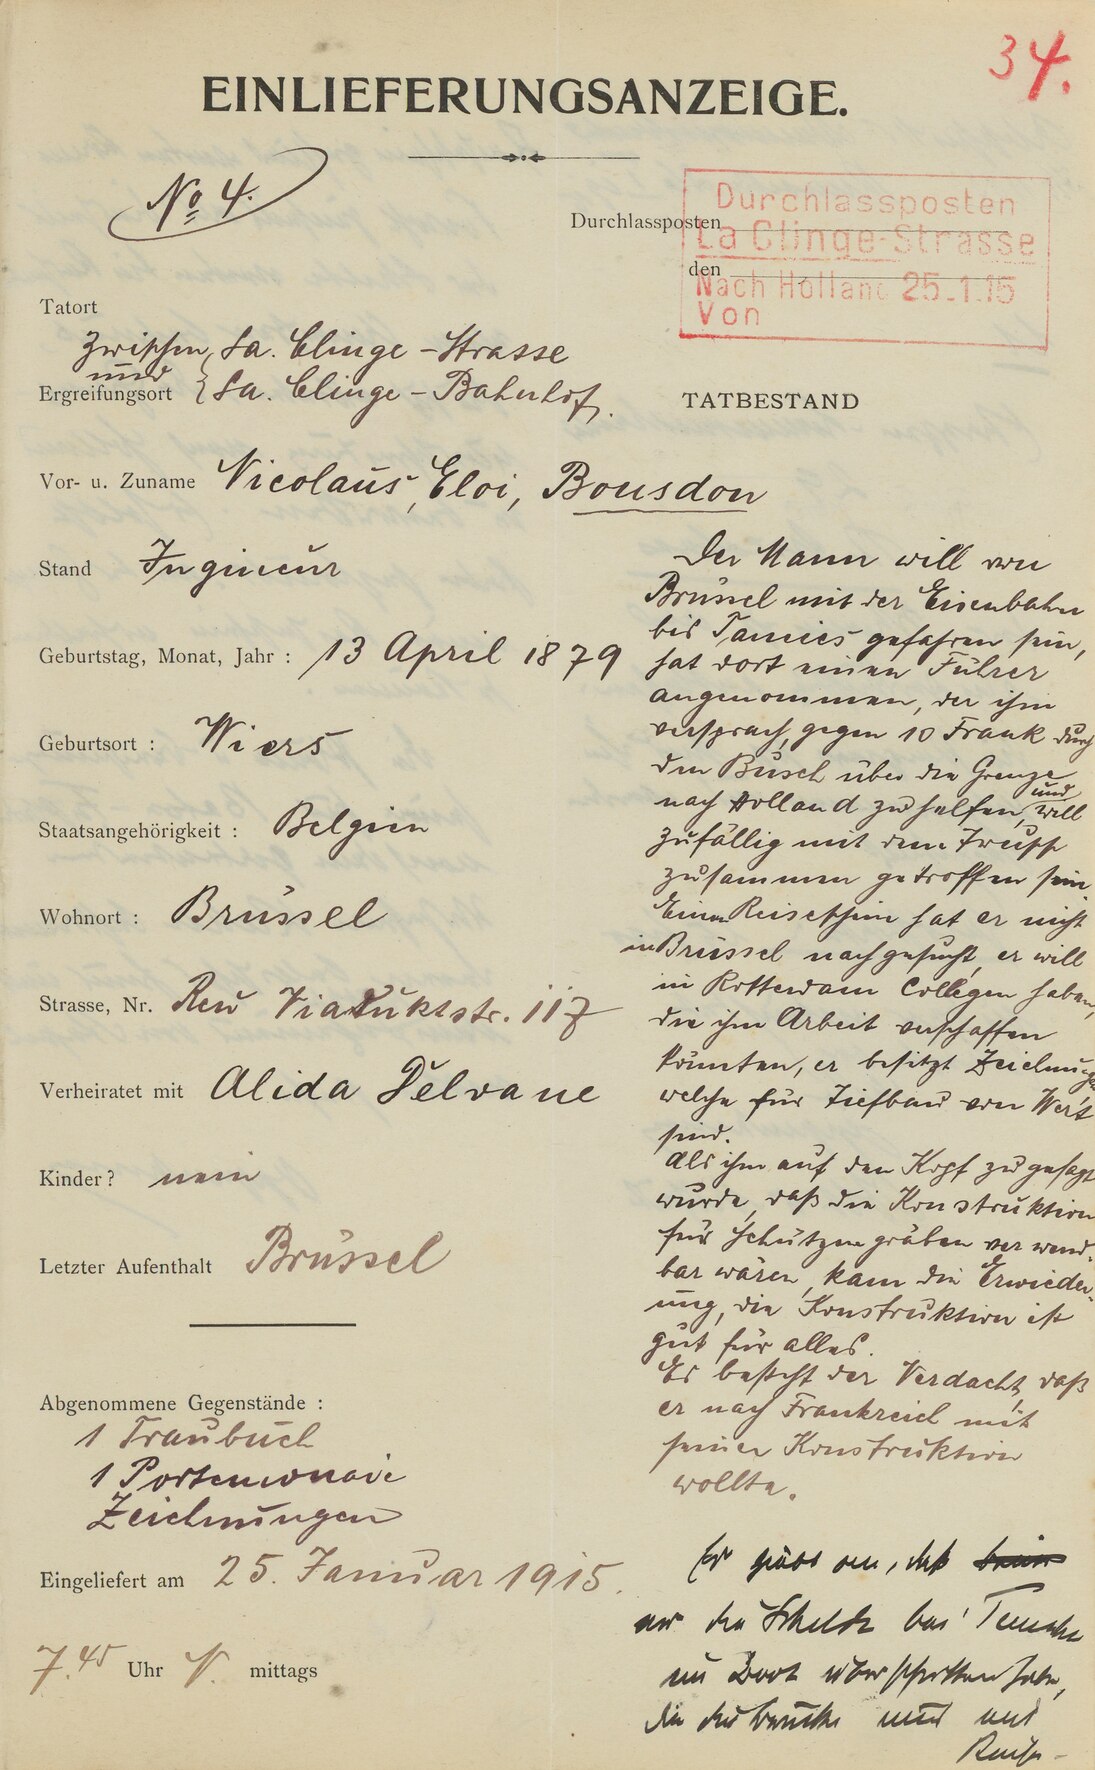 34.
EINLIEFERUNGSANZEIGE.
No 4.
Durchlassposten
den
Durchlassposten
La Clinge-Strasse
Nach Holland 25.1.15
Von
Tatort
zwischen La. Clinge-Strasse
und
Ergreifungsort La. Clinge-Bahnhof.
Vor- u. Zuname Nicolaus, Eloi, Bousdon
Stand Ingineur
Geburtstag, Monat, Jahr : 13 April 1879
Geburtsort : Wiers
Staatsangehörigkeit : Belgien
Wohnort : Brüssel
Strasse, Nr. Reu Viaduktstr. 117
Verheiratet mit Alida Delvaue
Kinder? nein
Letzter Aufenthalt Brüssel
Abgenommene Gegenstände :
1 Traubuch
1 Portemonaie
Zeichnungen
Eingeliefert am 25. Januar 1915.
7.45 Uhr N. mittags
TATBESTAND
Der Mann will von
Brüssel mit der Eisenbahn
bis Tamies gefahren sein,
hat dort einen Führer
angenommen, der ihm
versprach, gegen 10 Frank durch
den Busch über die Grenze
nach Holland zu helfen, und will
zufällig mit dem Trupp
zusammen getroffen sein
Einen Reiseschein hat er nicht
in Brüssel nachgesucht, er will
in Rotterdam Collegen haben,
die ihm Arbeit verschaffen
könnten, er besitzt Zeichnungen
welche für Tiefbau von Wert
sind.
Als ihm auf den Kopf zu gesagt
wurde, daß die Konstruktion
für Schützengräben verwend-
bar wären, kam die Erwieder-
ung, die Konstruktion ist
gut für alles.
Es besteht der Verdacht, daß
er nach Frankreich mit
seiner Konstruktion
wollte.
Er giebt an, daß
er die Schelde bei Temsche
im Boot überschritten habe,
die Brücke nur mit
Reise-